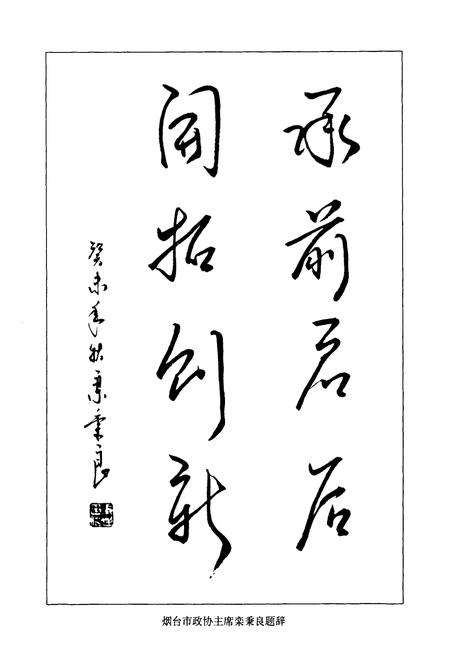 承前启后
开拓创新
癸未年秋栾秉良
烟台市政协主席栾秉良题辞